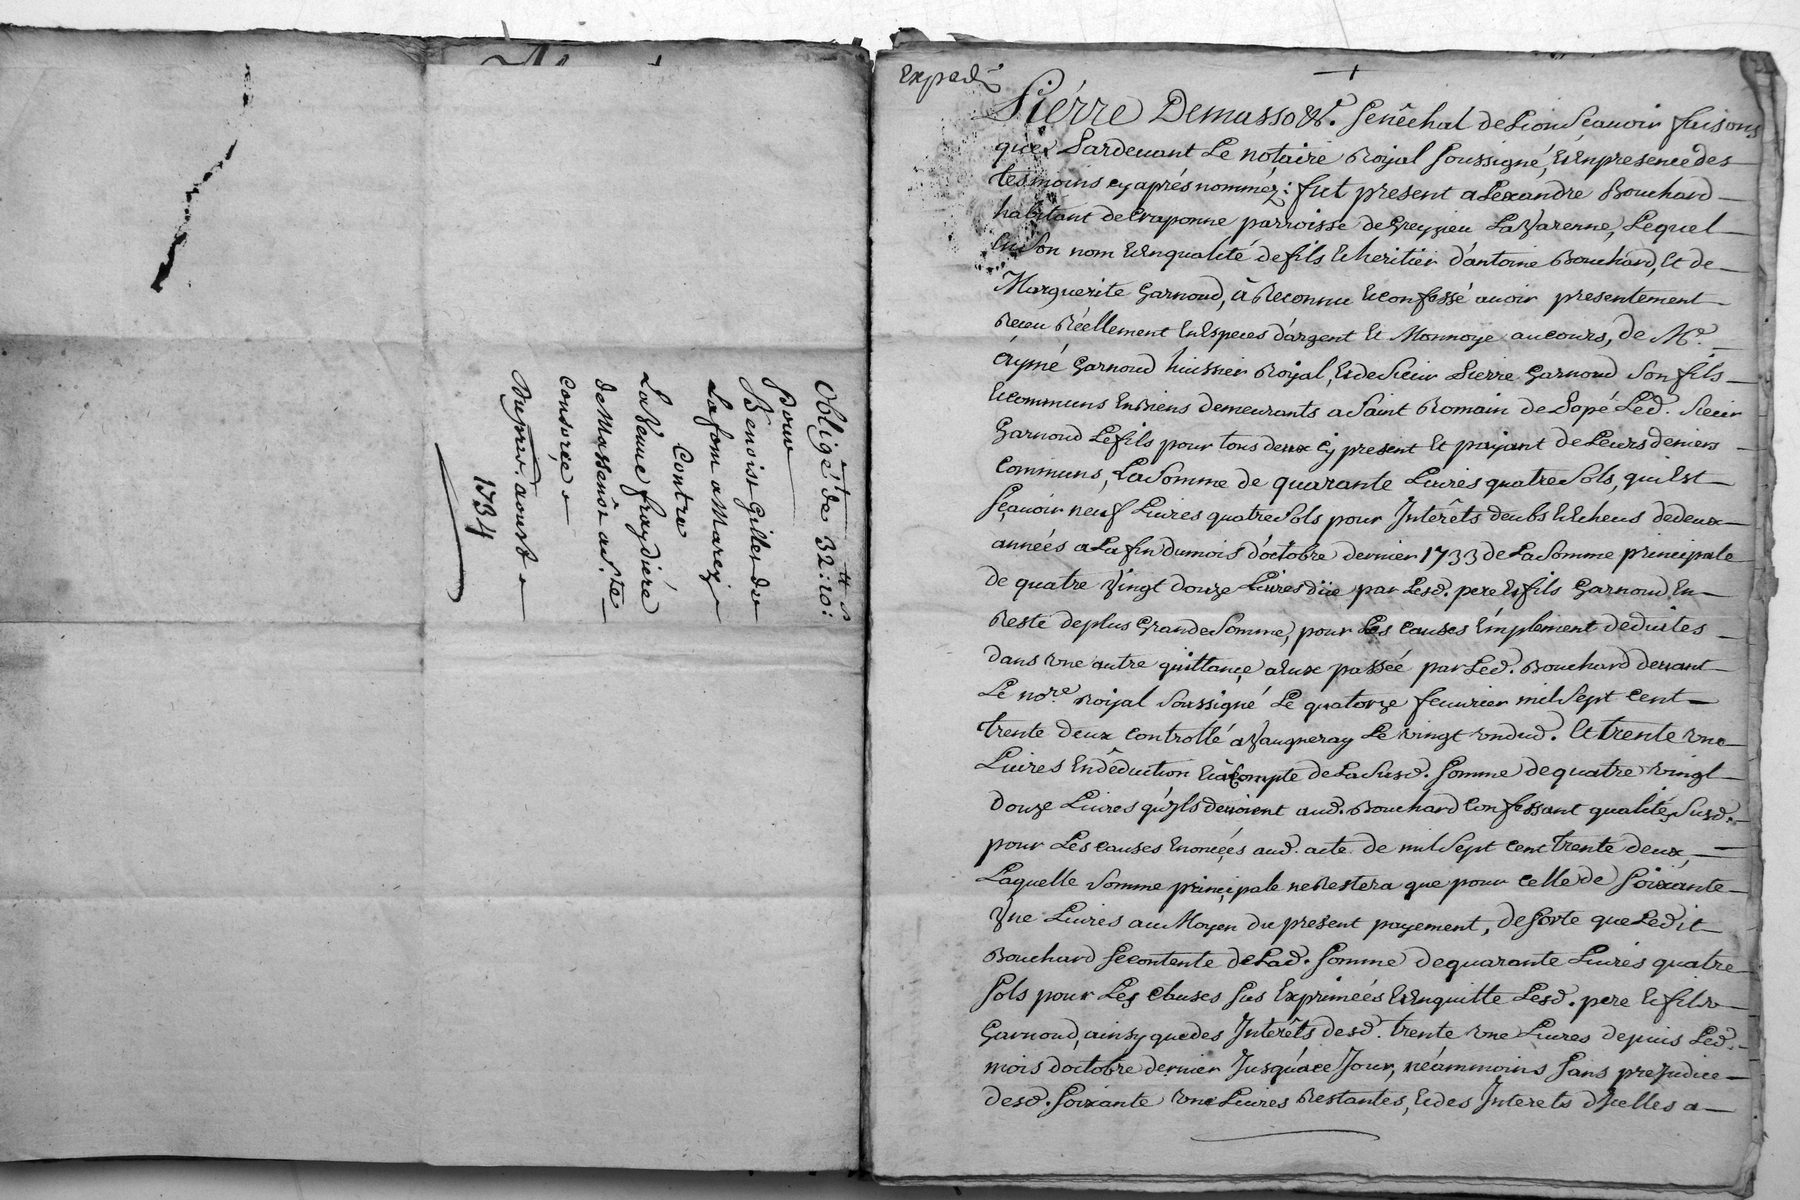 Obligé de 32:10:
Pour
Benoist Gillet du
Lafont a Marcy
Contre
La Veuve fraydiére
de Massenôt a Ste
Consorce
Du pred. aoust
1734
Expedié
Pierre Demasso &c. Senêchal de Lion Scauoir faisons
que Pardeuant Le notaire Roÿal soussigné, et Enpresence des
tesmoins cy aprés nomméz: fut present alexandre Bouchard
habitant de Craponne parroisse de Greyzieu La Varenne, Lequel
En Son nom et Enqualité de fils et heritier d'antoine Bouchard, et de
Marguerite Garnoud, à Reconnu et confessé auoir presentement
Receu Réellement En Especes d'argent et Monnoye au cours, de Me.
aymé Garnoud huissier Roÿal, et de Sieur Pierre Garnoud Son fils
et communs En Biens demeurants a Saint Romain de Popé Led. Sieur
Garnoud Le fils pour tous deux Cy present et païant de Leurs deniers
Communs, La Somme de quarante Liures quatre Sols, qui Est
Sçauoir neuf Liures quatre Sols pour Interêts deubs et Echeus de deux
années a La fin du mois d'octobre dernier 1733 de La Somme principale
de quatre Vingt douze Liures düe par Lesd. pere et fils Garnoud En
Reste de plus Grande Somme, pour Les Causes Emplement deduites
dans une autre quittançe a Eux passée par Led. Bouchard deuant
Le nore. Roÿal Soussigné Le quatorze feuurier mil Sept Cent
trente deux Controllé a Vaugneray Le vingt un dud. Et trente une
Liures En dêduction et à Compte de La Susd. Somme de quatre vingt
douze Liures qu'ils deuoient aud. Bouchard Confessant qualités Susd.
pour Les causes Enoncées aud. acte de mil Sept Cent trente deux,
Laquelle Somme principale ne Restera que pour celle de Soixante
Une Liures au Moyen du present payement, de Sorte que Ledit
Bouchard Se contente de Lad. Somme de quarante Liures quatre
Sols pour Les Causes Sus Exprimeés et En quitte Lesd. pere et fils
Garnoud, ainsy que des Interêts desd. trente une Liures depuis Led.
mois d'octobre dernier Jusqu'à ce Jour, néammoins Sans prejudice
desd. Soixante une Liures Restantes, et des Interets d'Icelles a